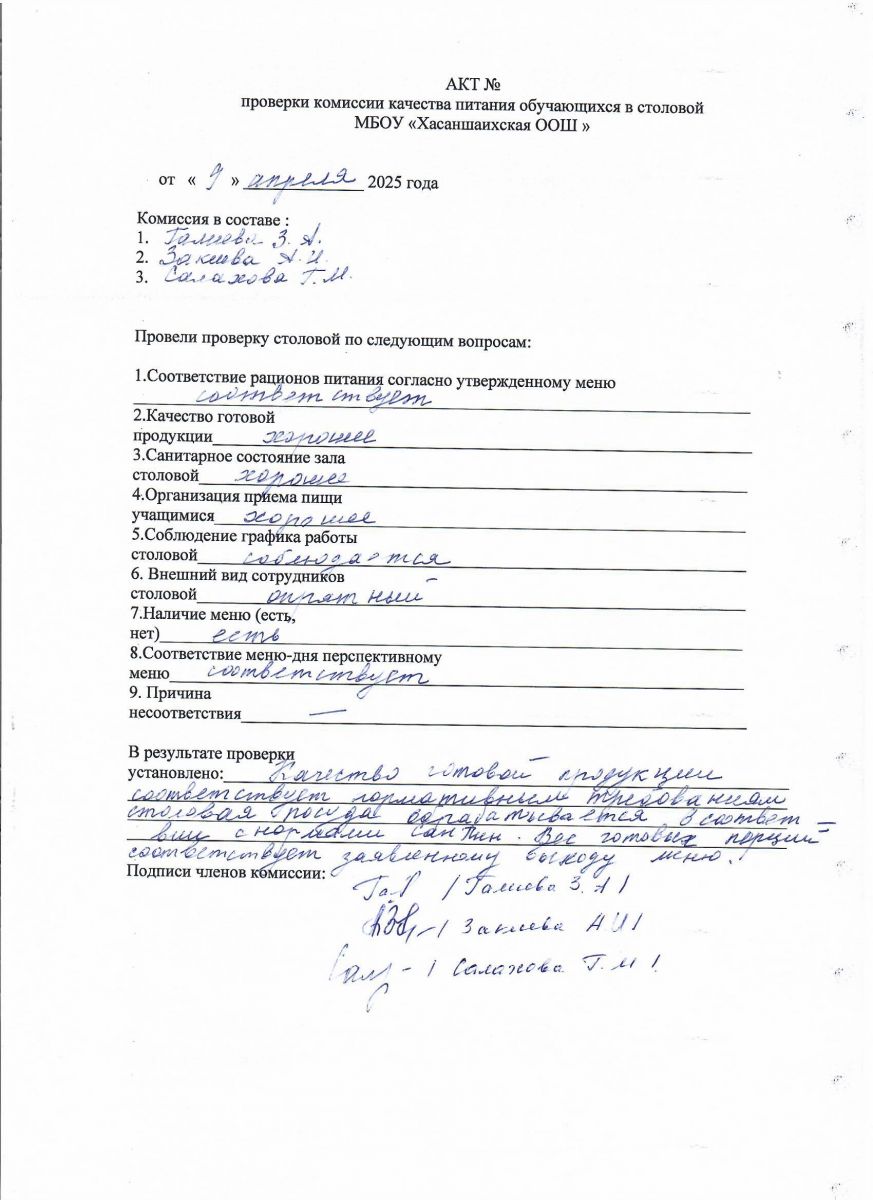 АКТ №
проверки комиссии качества питания обучающихся в столовой
МБОУ «Хасаншаихская ООШ »
от « 9 » апреля 2025 года
Комиссия в составе :
1. Галиева З. А.
2. Закиева А.И.
3. Салахова Г.М.
Провели проверку столовой по следующим вопросам:
1.Соответствие рационов питания согласно утвержденному меню
соответствует
2.Качество готовой
продукции хорошее
3.Санитарное состояние зала
столовой хорошее
4.Организация приема пищи
учащимися хорошее
5.Соблюдение графика работы
столовой соблюдается
6. Внешний вид сотрудников
столовой опрятный
7.Наличие меню (есть,
нет) есть
8.Соответствие меню-дня перспективному
меню соответствует
9. Причина
несоответствия —
В результате проверки
установлено: Качество готовой продукции
соответствует нормативным требованиям
столовая посуда обрабатывается в соответ –
вии с нормами СанПин. Вес готовых порций
соответствует заявленному выходу меню.
Подписи членов комиссии:
/ Галиева З. А /
/ Закиева А И /
/ Салахова Г. М /.